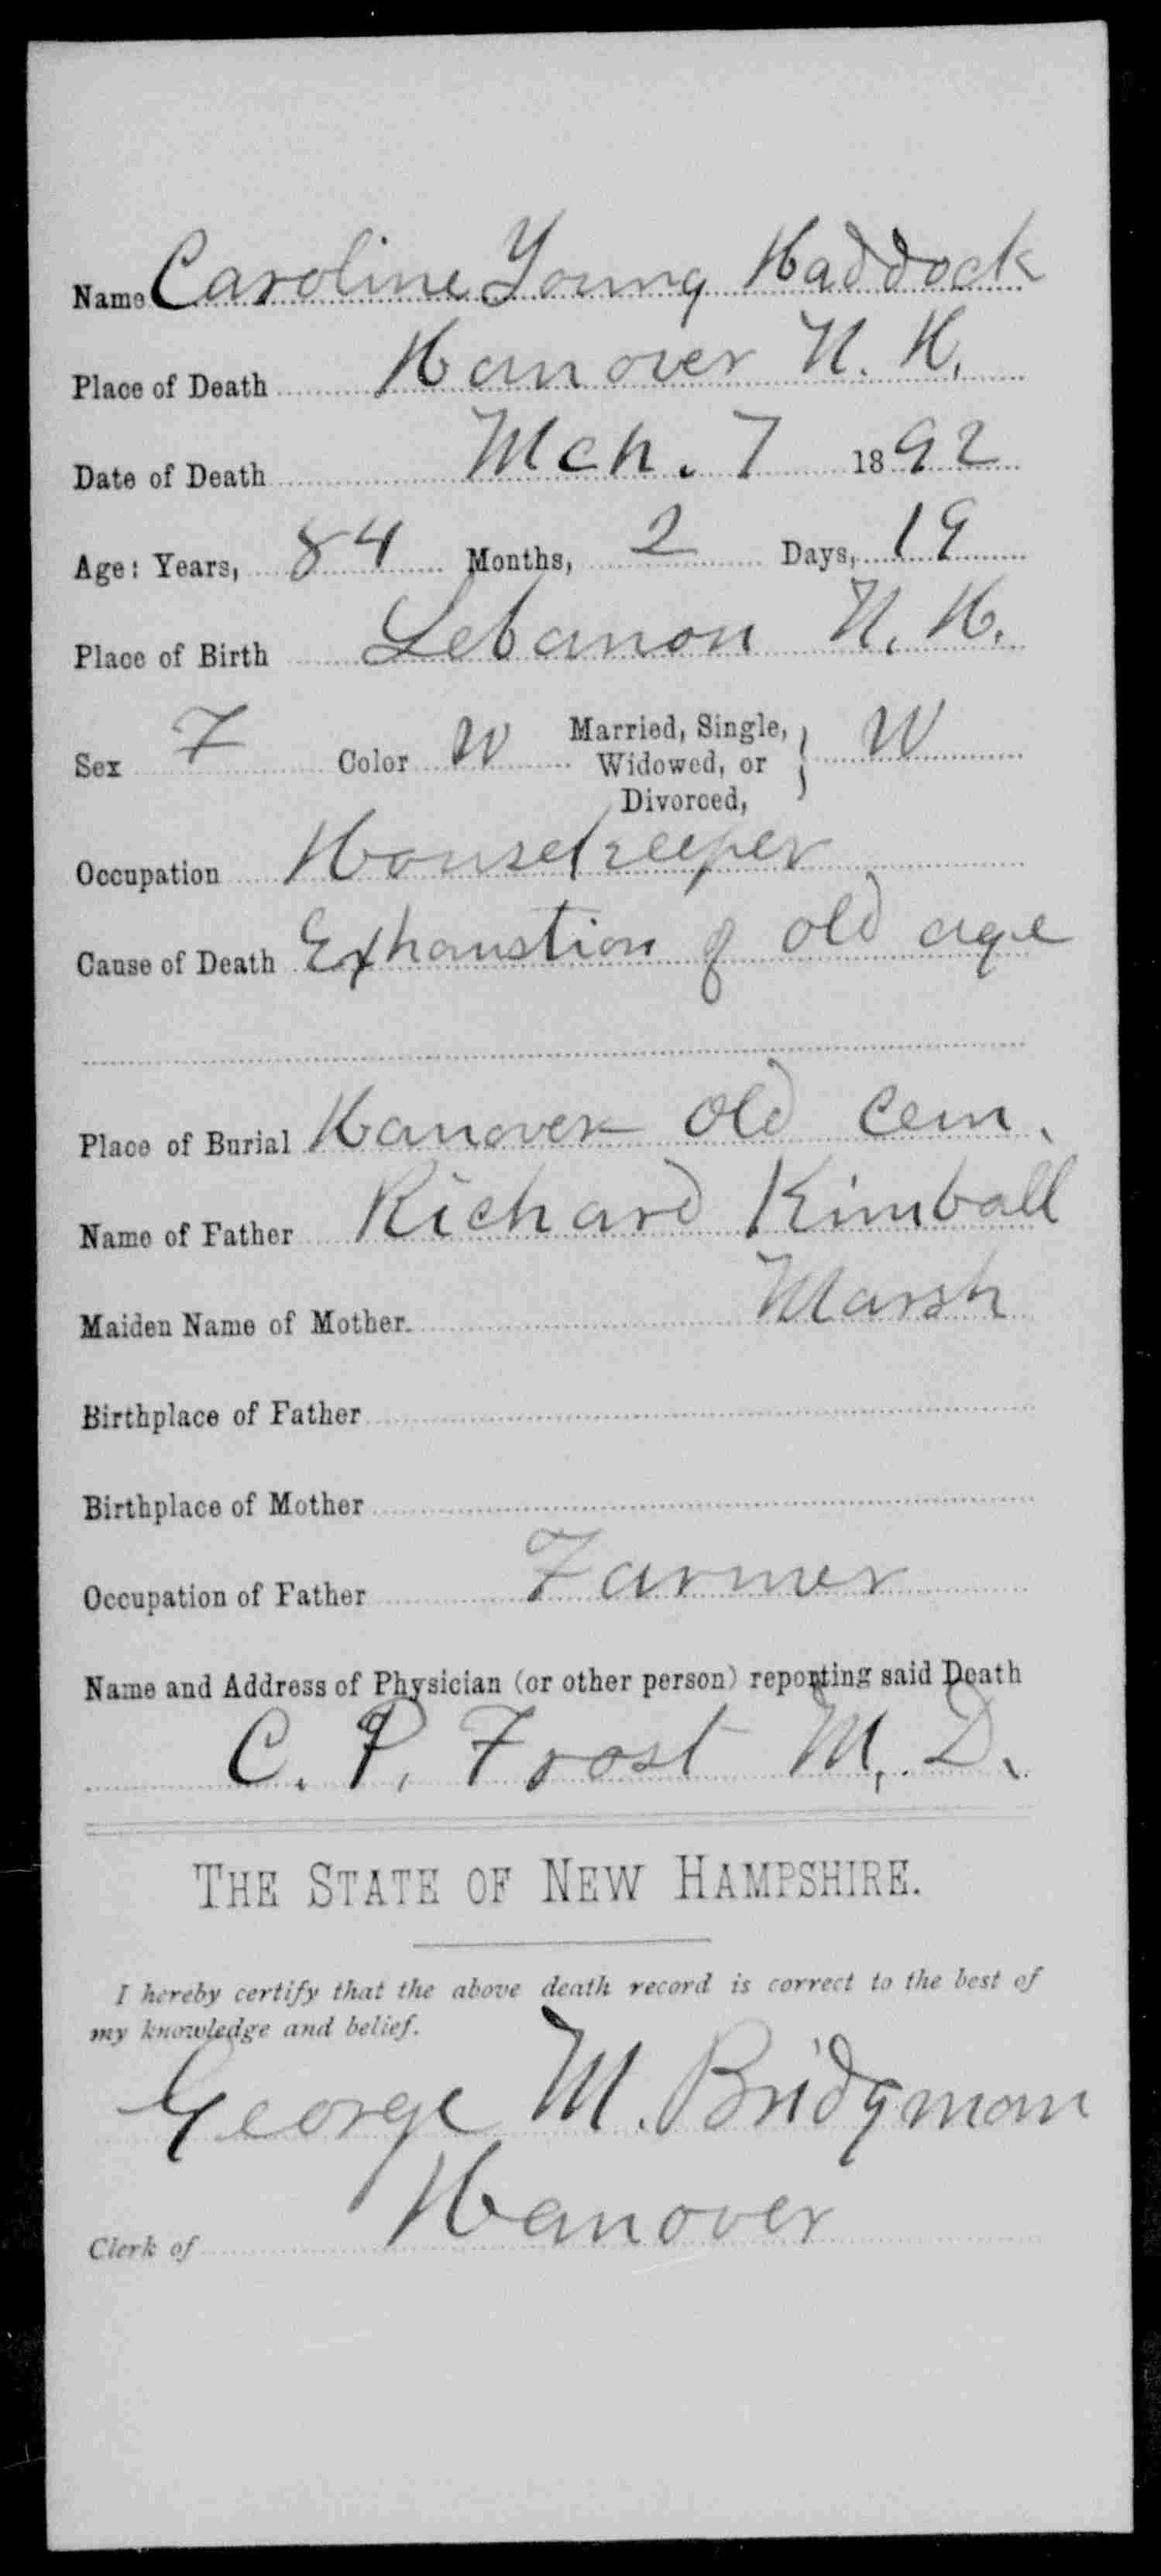 Name Caroline Young Haddock
Place of Death Hanover N. H.
Date of Death Mch. 7 1892
Age: Years, 84 Months, 2 Days, 19
Place of Birth Lebanon N. H.
Sex F Color W Married, Single, Widowed, or Divorced, } W
Occupation Housekeeper
Cause of Death Exhaustion of old age
Place of Burial Hanover old cem.
Name of Father Richard Kimball
Maiden Name of Mother Marsh
Birthplace of Father
Birthplace of Mother
Occupation of Father Farmer
Name and Address of Physician (or other person) reporting said Death
C. P. Frost M. D.
THE STATE OF NEW HAMPSHIRE.
I hereby certify that the above death record is correct to the best of
my knowledge and belief.
George M. Bridgman
Clerk of Hanover